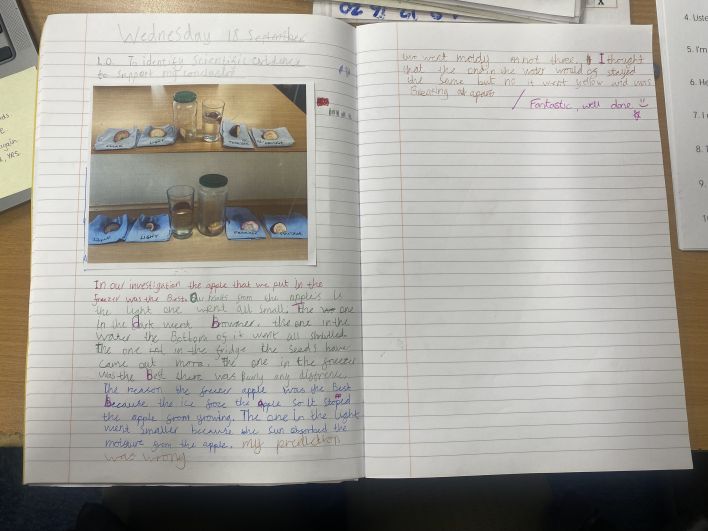 Wednesday 18 September
L.O. To identify scientific evidence
to support my conclusion
In our investigation the apple that we put in the
freezer was the Best. Our points from the apples is
the light one went all small. The one
in the dark went browner. the one in the
water the Bottom of it went all shrivelled.
The one in the fridge the seeds have
came out more. The one in the freezer
was the best there was barly any diffrence.
The reason the freezer apple was the Best
Because the ice froze the apple so it stoped
the apple from growing. The one in the light
went smaller because the sun absorbed the
moisture from the apple. my prediction
was wrong
went moldy not three. I thought
that the one in the water would of stayed
the same but no it went yellow and was
Breaking apart
/ Fantastic, well done
FRIDGE
LIGHT
FREEZER
LIGHT
FREEZER
4. Liste
5. I'm
6. He
7. I
8.
9.
again
, yes.